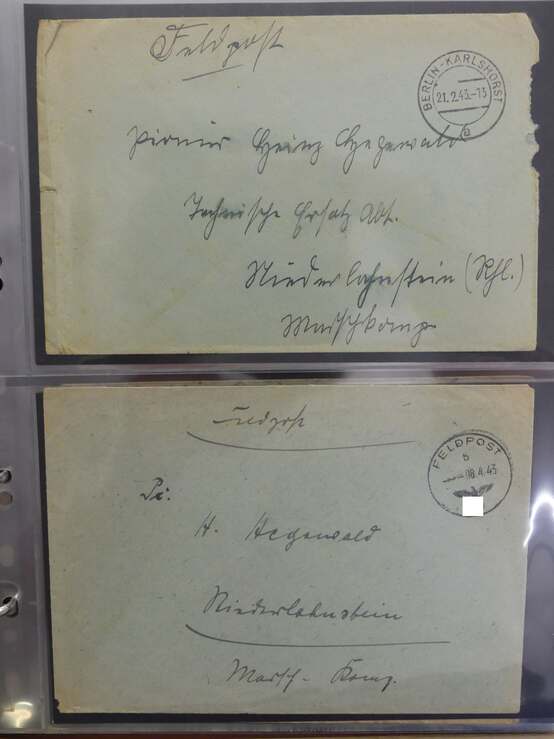 Feldpost
BERLIN-KARLSHORST
21.2.43.-13
a
Pionier Heinz Hegewald
Technische Ersatz Abt.
Niederlahnstein (Rhl.)
Marschkomp.
Feldpost
FELDPOST
b
08.4.43
Pi.
H. Hegewald
Niederlahnstein
Marsch- Komp.